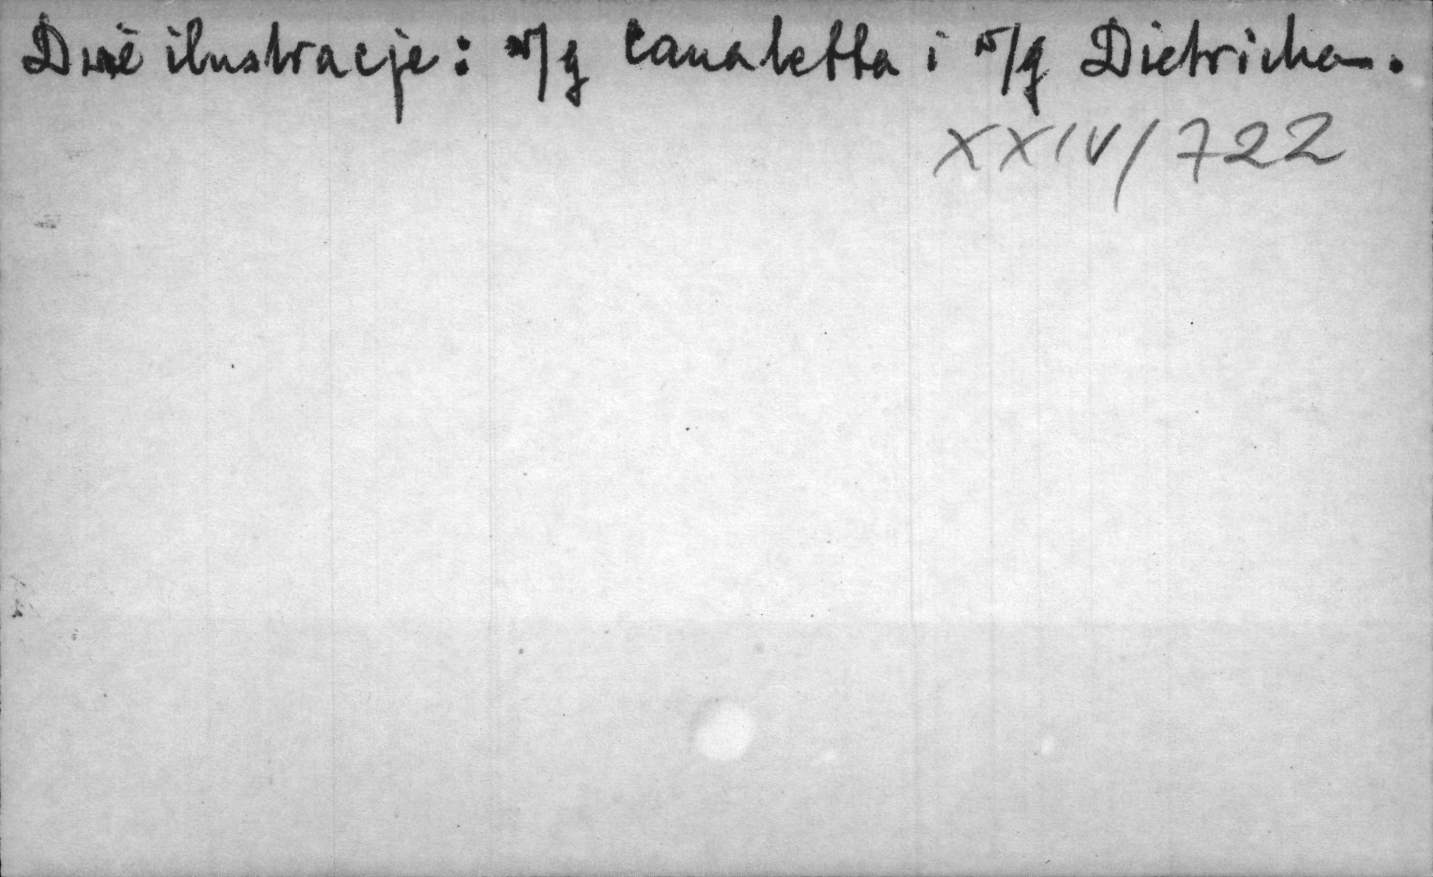 Dwie ilustracje: w/g Canaletta i w/g Dietricha.
XXIV/722